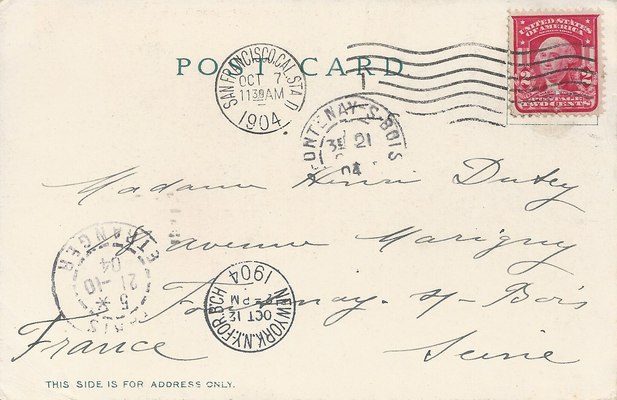 UNITED STATES
OF AMERICA
2 2
POSTAGE
TWO CENTS
POST CARD.
SAN FRANCISCO, CAL. STA. D
OCT 7
1130AM
1904
FONTENAY-S-BOIS
21
04
Madame Henri Dutey
avenue Marigny
Fontenay-s/-Bois
France Seine
ETRANGER
5 *
21-10
04
NEW YORK, N.Y.-FOR. B'CH
OCT 12
PM
1904
THIS SIDE IS FOR ADDRESS ONLY.